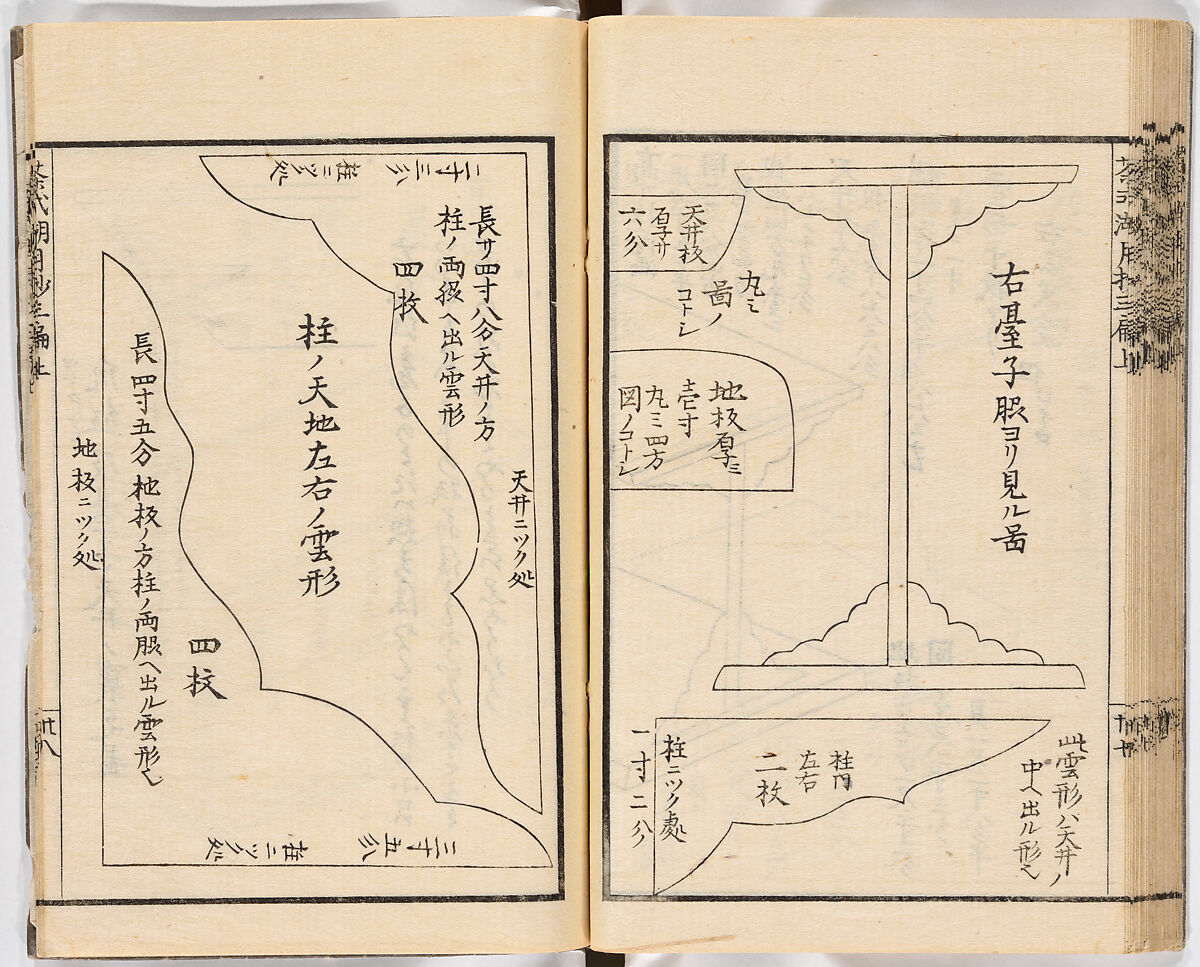 右臺子脇ヨリ見ル啚
天井板
厚サ
六分
丸ミ
啚ノ
コトシ
地板厚ミ
壱寸
丸ミ四方
図ノコトシ
此雲形ハ天井ノ
中ヘ出ル形也
柱内
左右
二枚
柱ニツク處
一寸二分
天井ニツク処
二寸三分
柱ニツク処
長サ四寸八分天井ノ方
柱ノ両脇ヘ出ル雲形
四枚
柱ノ天地左右ノ雲形
四枚
長四寸五分地板ノ方柱ノ両脇ヘ出ル雲形也
地板ニツク処
三寸五分
柱ニツク処
廿八